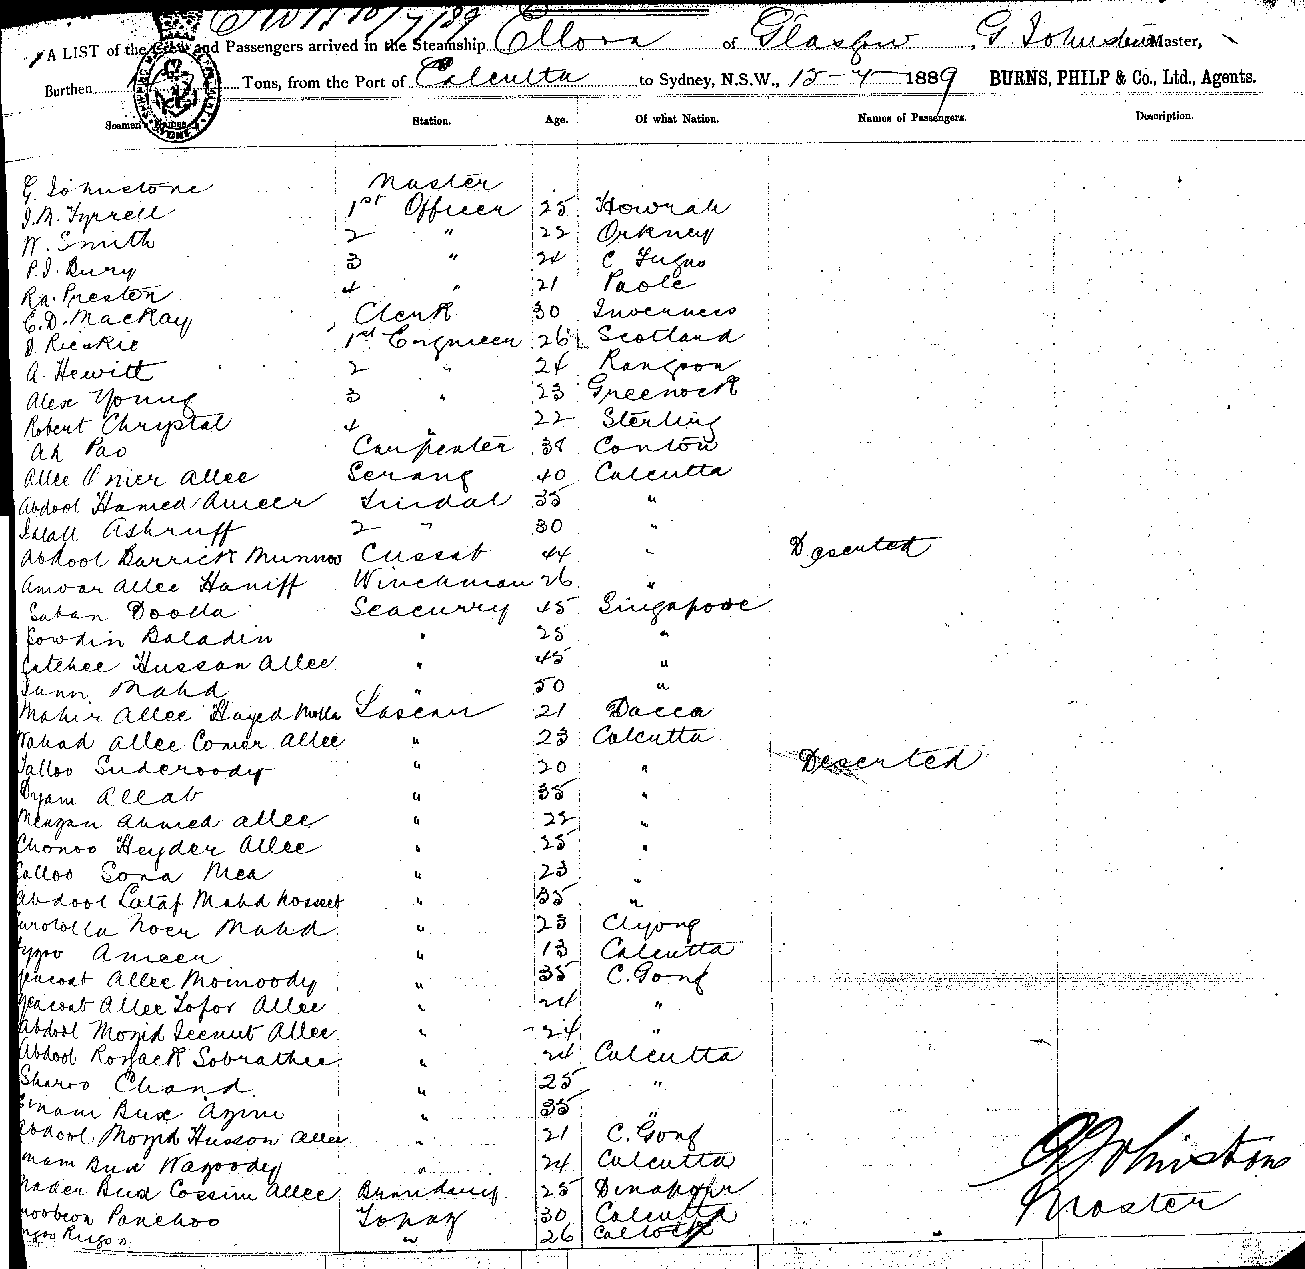 A LIST of the Crew and Passengers arrived in the Steamship Ellora of Glasgow G Johnston Master,
Burthen Tons, from the Port of Calcutta to Sydney, N.S.W., 15-7-1889 BURNS, PHILP & Co., Ltd., Agents.
Seamen Names Station. Age. Of what Nation. Names of Passengers. Description.
G. Johnstone Master
J.M. Tyrrell 1st Officer 25 Howrah
W. Smith 2 " 22 Orkney
P.J. Bury 3 " 24
Ra. Preston 4 " 21 Poole
C.D. MacKay Clerk 30 Inverness
1st Engineer 26 Scotland
A. Hewitt 2 " 24 Rangoon
Alex Young 3 " 23 Greenock
Robert Chrystal 4 " 22 Sterling
Ah Pao Carpenter 38 Conton
Allee Omer Allee Serang 40 Calcutta
Abdool Hamed Ameer Tindal 35 "
Ashruff 2 " 30 "
Abdool Barrick Munnoo Cussab 44 " Deserted
Anwar Allee Haniff Winchman 26 "
Saban Doolla Seacurry 45 Singapore
Gowdin Baladin " 25 "
Catchee Hussan Allee " 45 "
Mahd " 50 "
Mahir Allee Hayed Molla Lascar 21 Dacca
Wahad Allee Comer Allee " 23 Calcutta
Suderoody " 20 " Deserted
Allab " 35 "
Ahmed Allee " 22 "
Chonoo Heyder Allee " 25 "
Calloo Sona Mea " 23 "
Abdool Lataf Mahd " 35 "
Noer Mahd " 23
Ameer " 13 Calcutta
Yeacoat Allee Momoody " 35 C. Gong
Yeacoat Allee Tofor Allee " 24 "
Abdool Mozid Allee " 24 "
Abdool Rozack Sobrathee " 24 Calcutta
Sharoo Chand " 25 "
Emam Bux Azim " 35 "
Abdool Mozid Husson Allee " 21 C. Gong
Emam Bux Wazoody " 24 Calcutta
Nader Bux Cossim Allee 25 Dinapour
Panchoo Topaz 30 Calcutta
" 26
G Johnston
Master